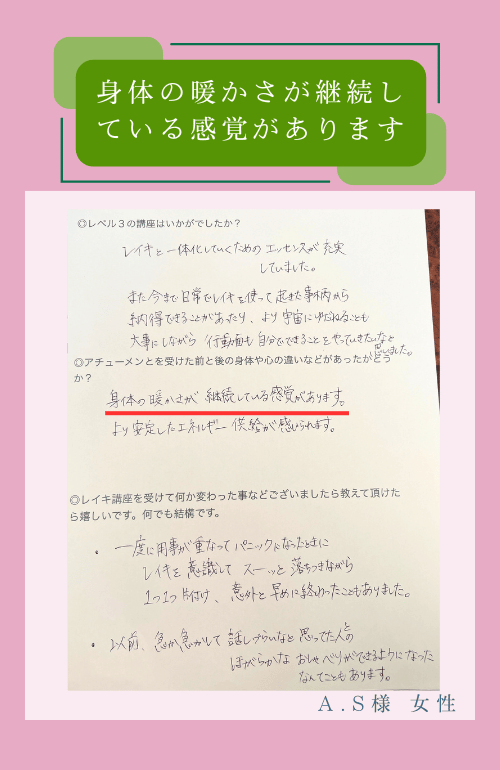 身体の暖かさが継続し
ている感覚があります
◎レベル3の講座はいかがでしたか？
レイキと一体化していくためのエッセンスが充実
していました。
また今まで日常でレイキを使って起きた事柄から
納得できることがあったり、より宇宙にゆだねることも
大事にしながら 行動面も自分でできることをやっていきたいなと
思いました。
◎アチューメンとを受けた前と後の身体や心の違いなどがあったかどう
か？
身体の暖かさが 継続している感覚があります。
より安定したエネルギー供給が感じられます。
◎レイキ講座を受けて何か変わった事などございましたら教えて頂けた
ら嬉しいです。何でも結構です。
・一度に用事が重なってパニックになったときに
レイキを意識して スーッと落ちつきながら
1つ1つ片付け、意外と早めに終わったこともありました。
・以前、急か急かして話しづらいなと思ってた人との
ほがらかな おしゃべりができるようになった
なんてこともあります。
A.S様 女性